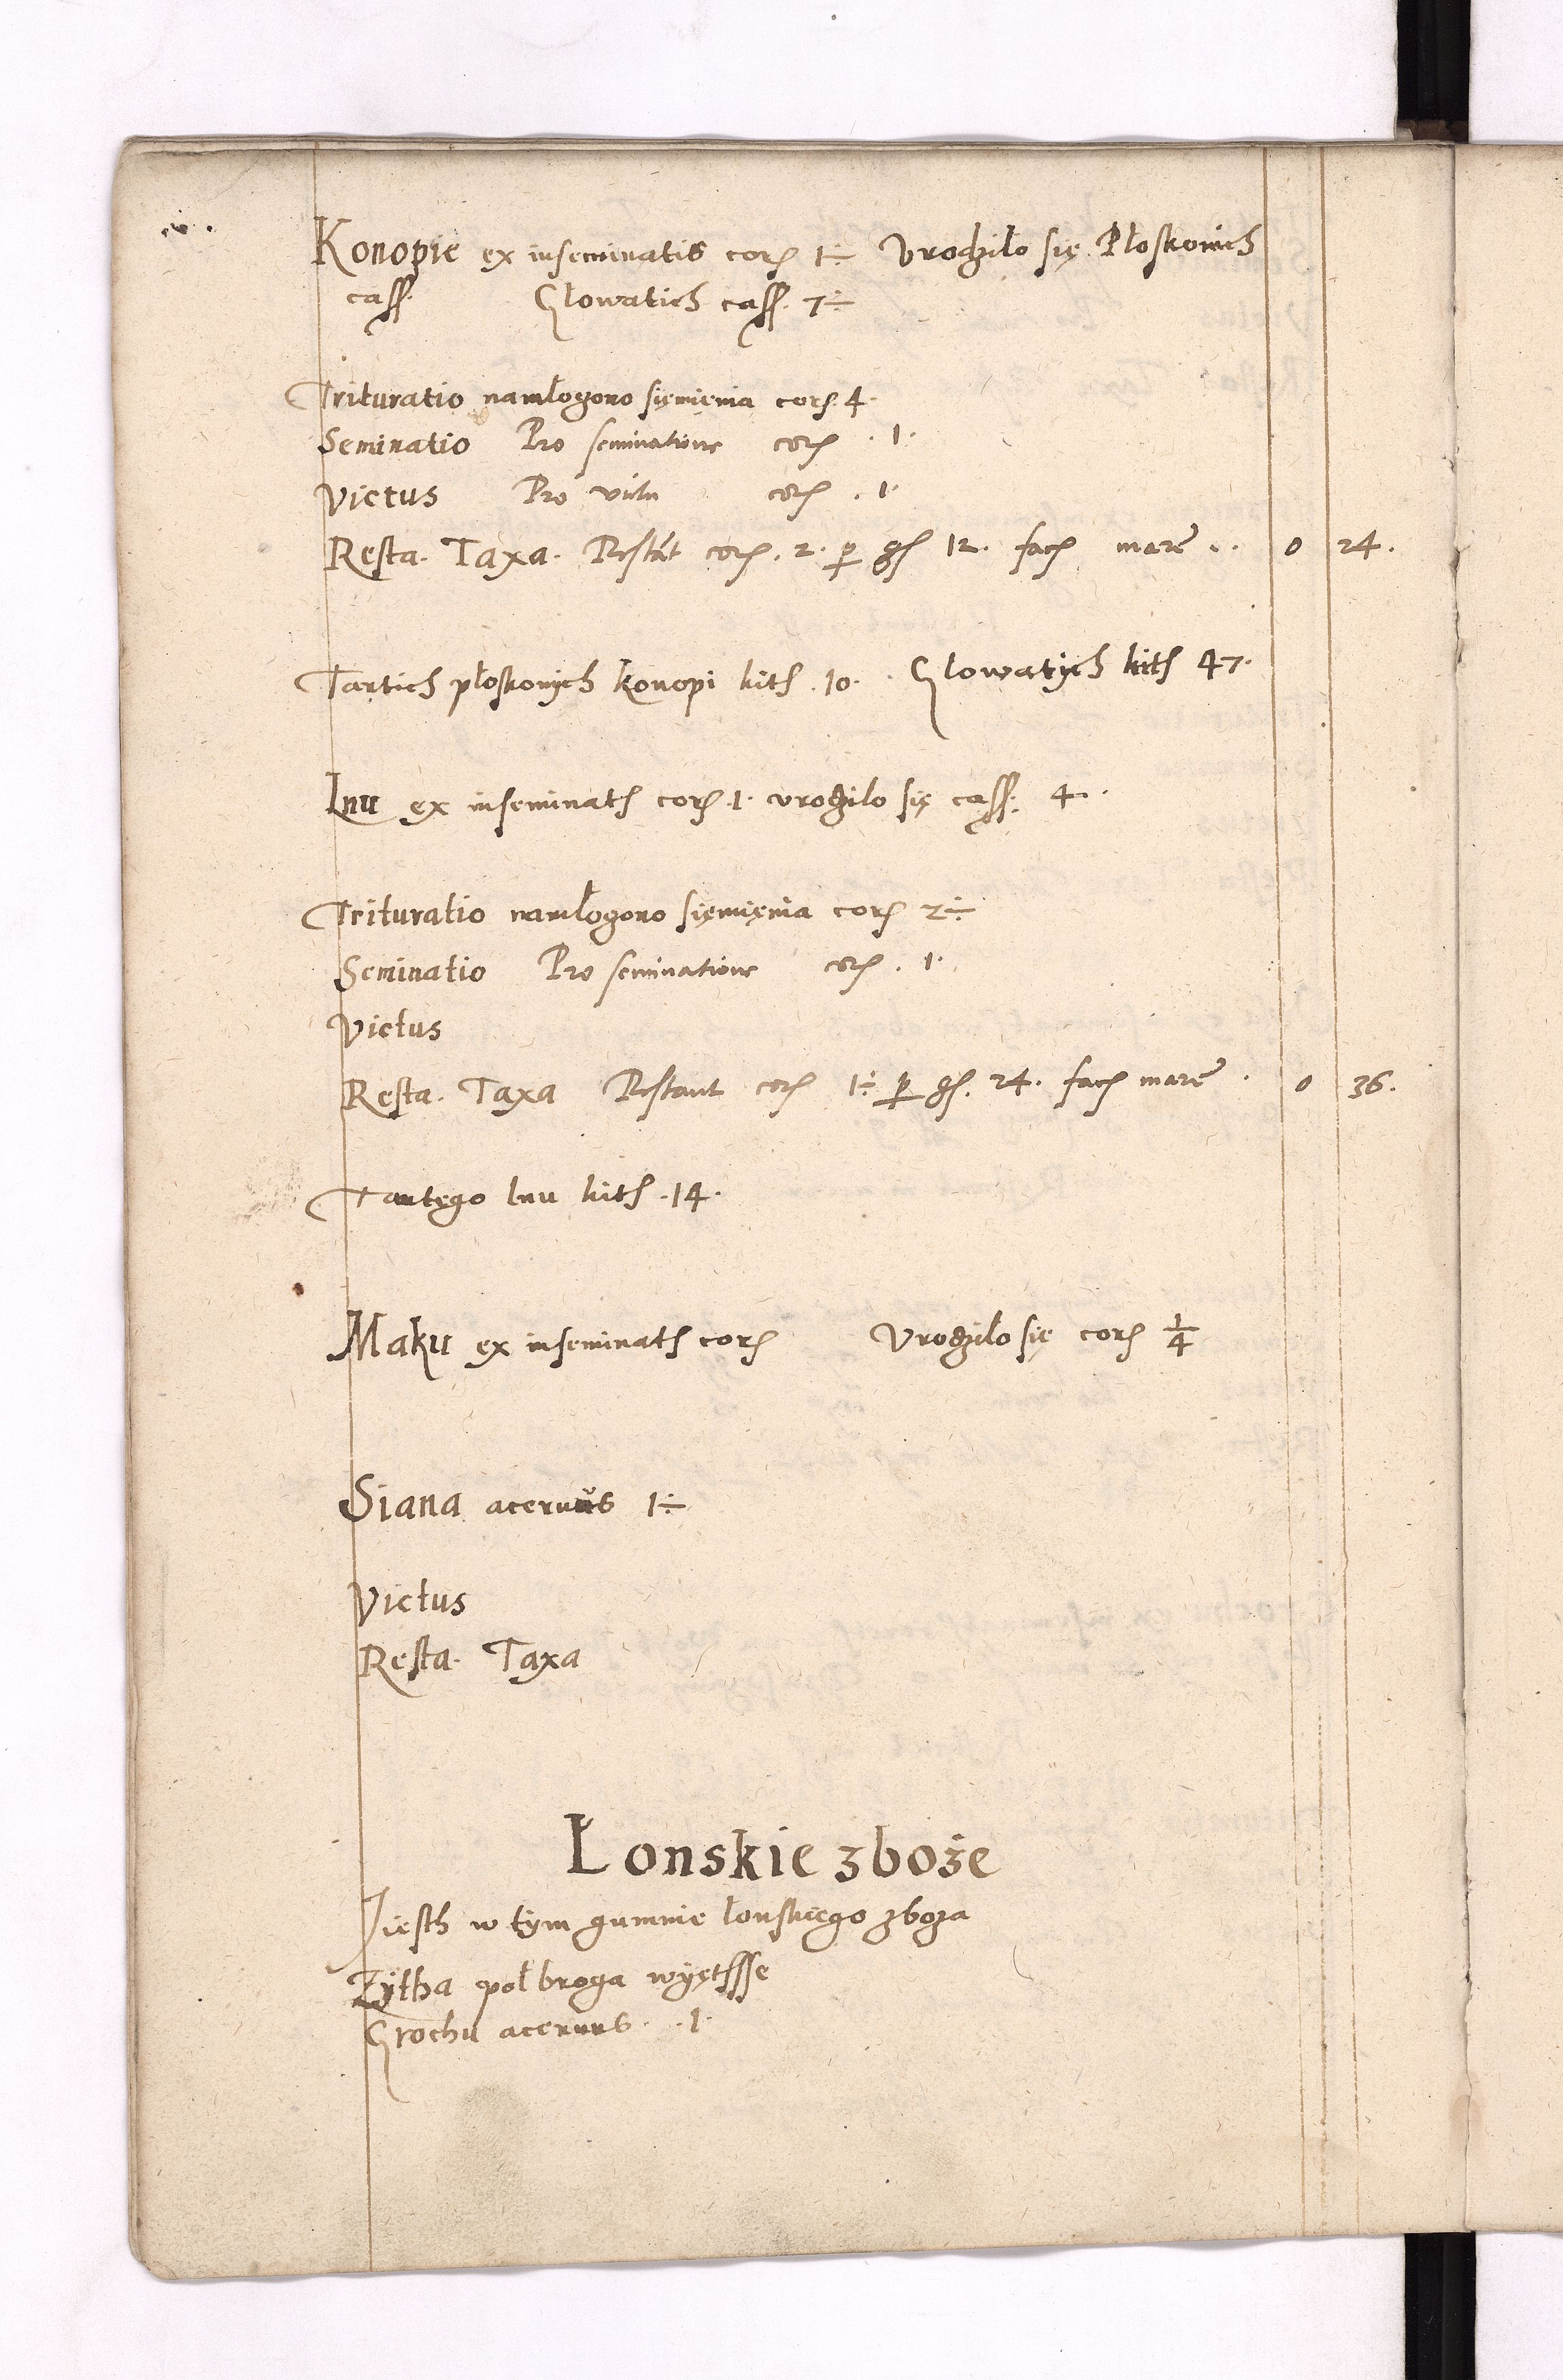 Konopie ex inseminatis corʒ 1÷ Vrodzilo się Płoskonich
cass. Glowatich cass. 7÷
Trituratio namłoƈono sięmięnia corʒ. 4.
Seminatio Pro seminatione corʒ . 1.
Victus Pro victu corʒ . 1.
Resta. Taxa. Restãt corʒ . 2. p gʃ 12. facʒ marc̃ . . 0 24.
Tartich płoskonych konopi kitʃ . 10. . Glowatych kitʃ 47.
Lnu ex inseminatʃ corʒ .1. vrodzilo się cass. 4.
Trituratio namłogono sięmięnia corʒ 2÷
Seminatio Pro seminatione corʒ . 1.
Victus
Resta. Taxa Restant corʒ 1÷ p gʃ. 24. facʒ marc̃ . 0 36.
Tartego lnu kitʃ .14.
Maku ex inseminatʃ corʒ Vrodzilo się corʒ 1/4
Siana aceruus 1÷
Victus
Resta. Taxa
Łonskie zboże
Jiesth w tym gumnie łonskiego zboza
Zytha poł broga wyętsse
Grochu aceruus . . 1.